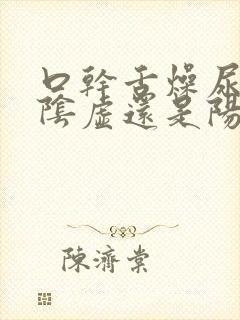 口幹舌燥尿
陰虛還是陽
陳濟棠